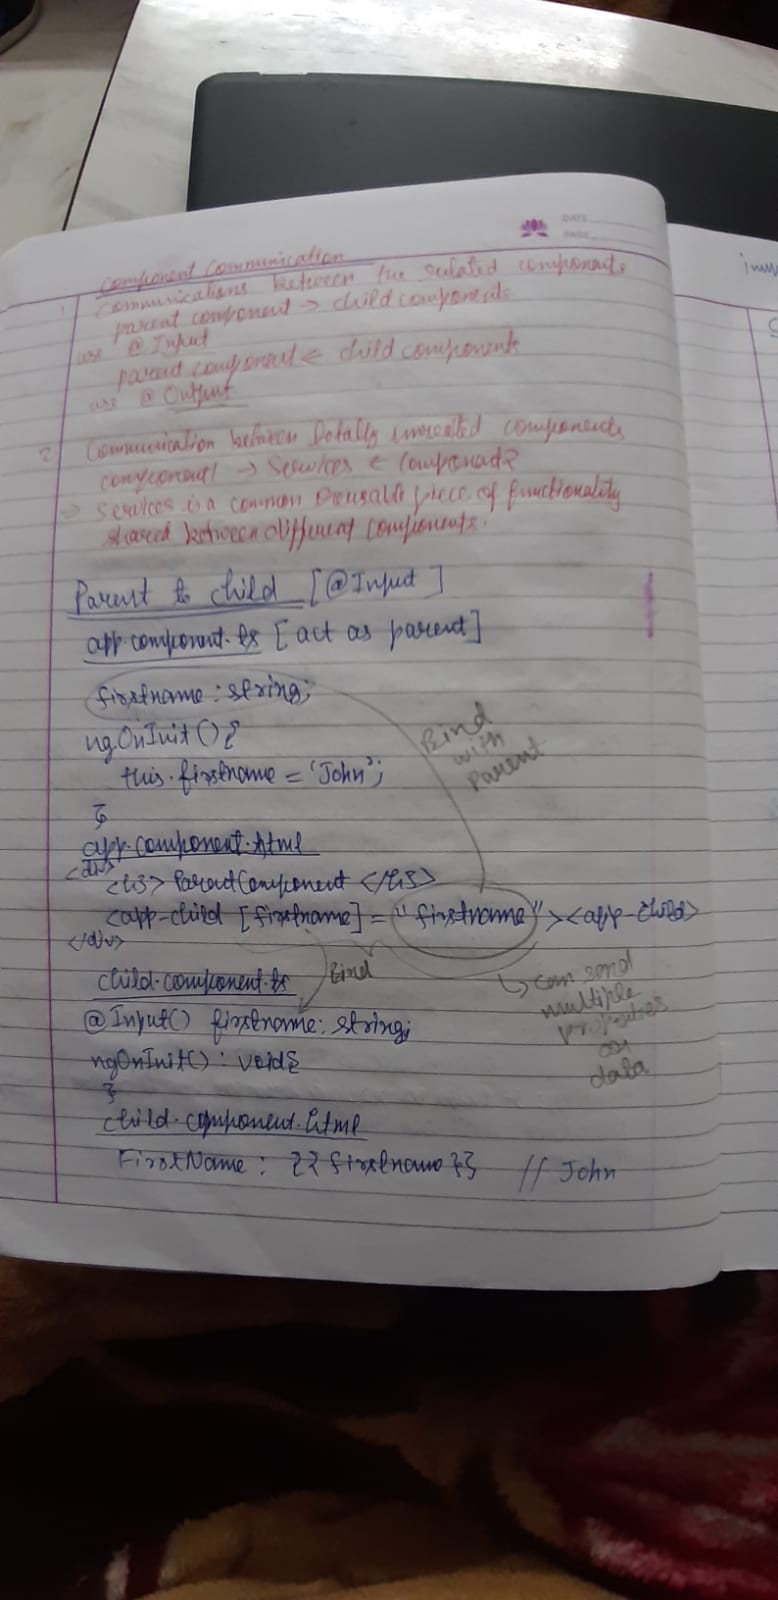 DATE
PAGE
Component Communication
1. Communications between the related components
parent component → child components
use @Input
parent component ← child components
use @Output
2. Communication between totally unrelated components
component1 → Services ← Component2
→ Services is a common reusable piece of functionality
shared between different components.
Parent to child [@Input]
app.component.ts [act as parent]
firstname : string;
ngOnInit() {
this.firstname = 'John';
}
Bind
with
parent
app.component.html
<div>
<h3> ParentComponent </h3>
<app-child [firstname] = "firstname"><app-child>
</div>
Bind
↳ can send
multiple
properties
or
data
child.component.ts
@Input() firstname: string;
ngOnInit() : void {
}
child.component.html
FirstName : {{ firstname }} // John